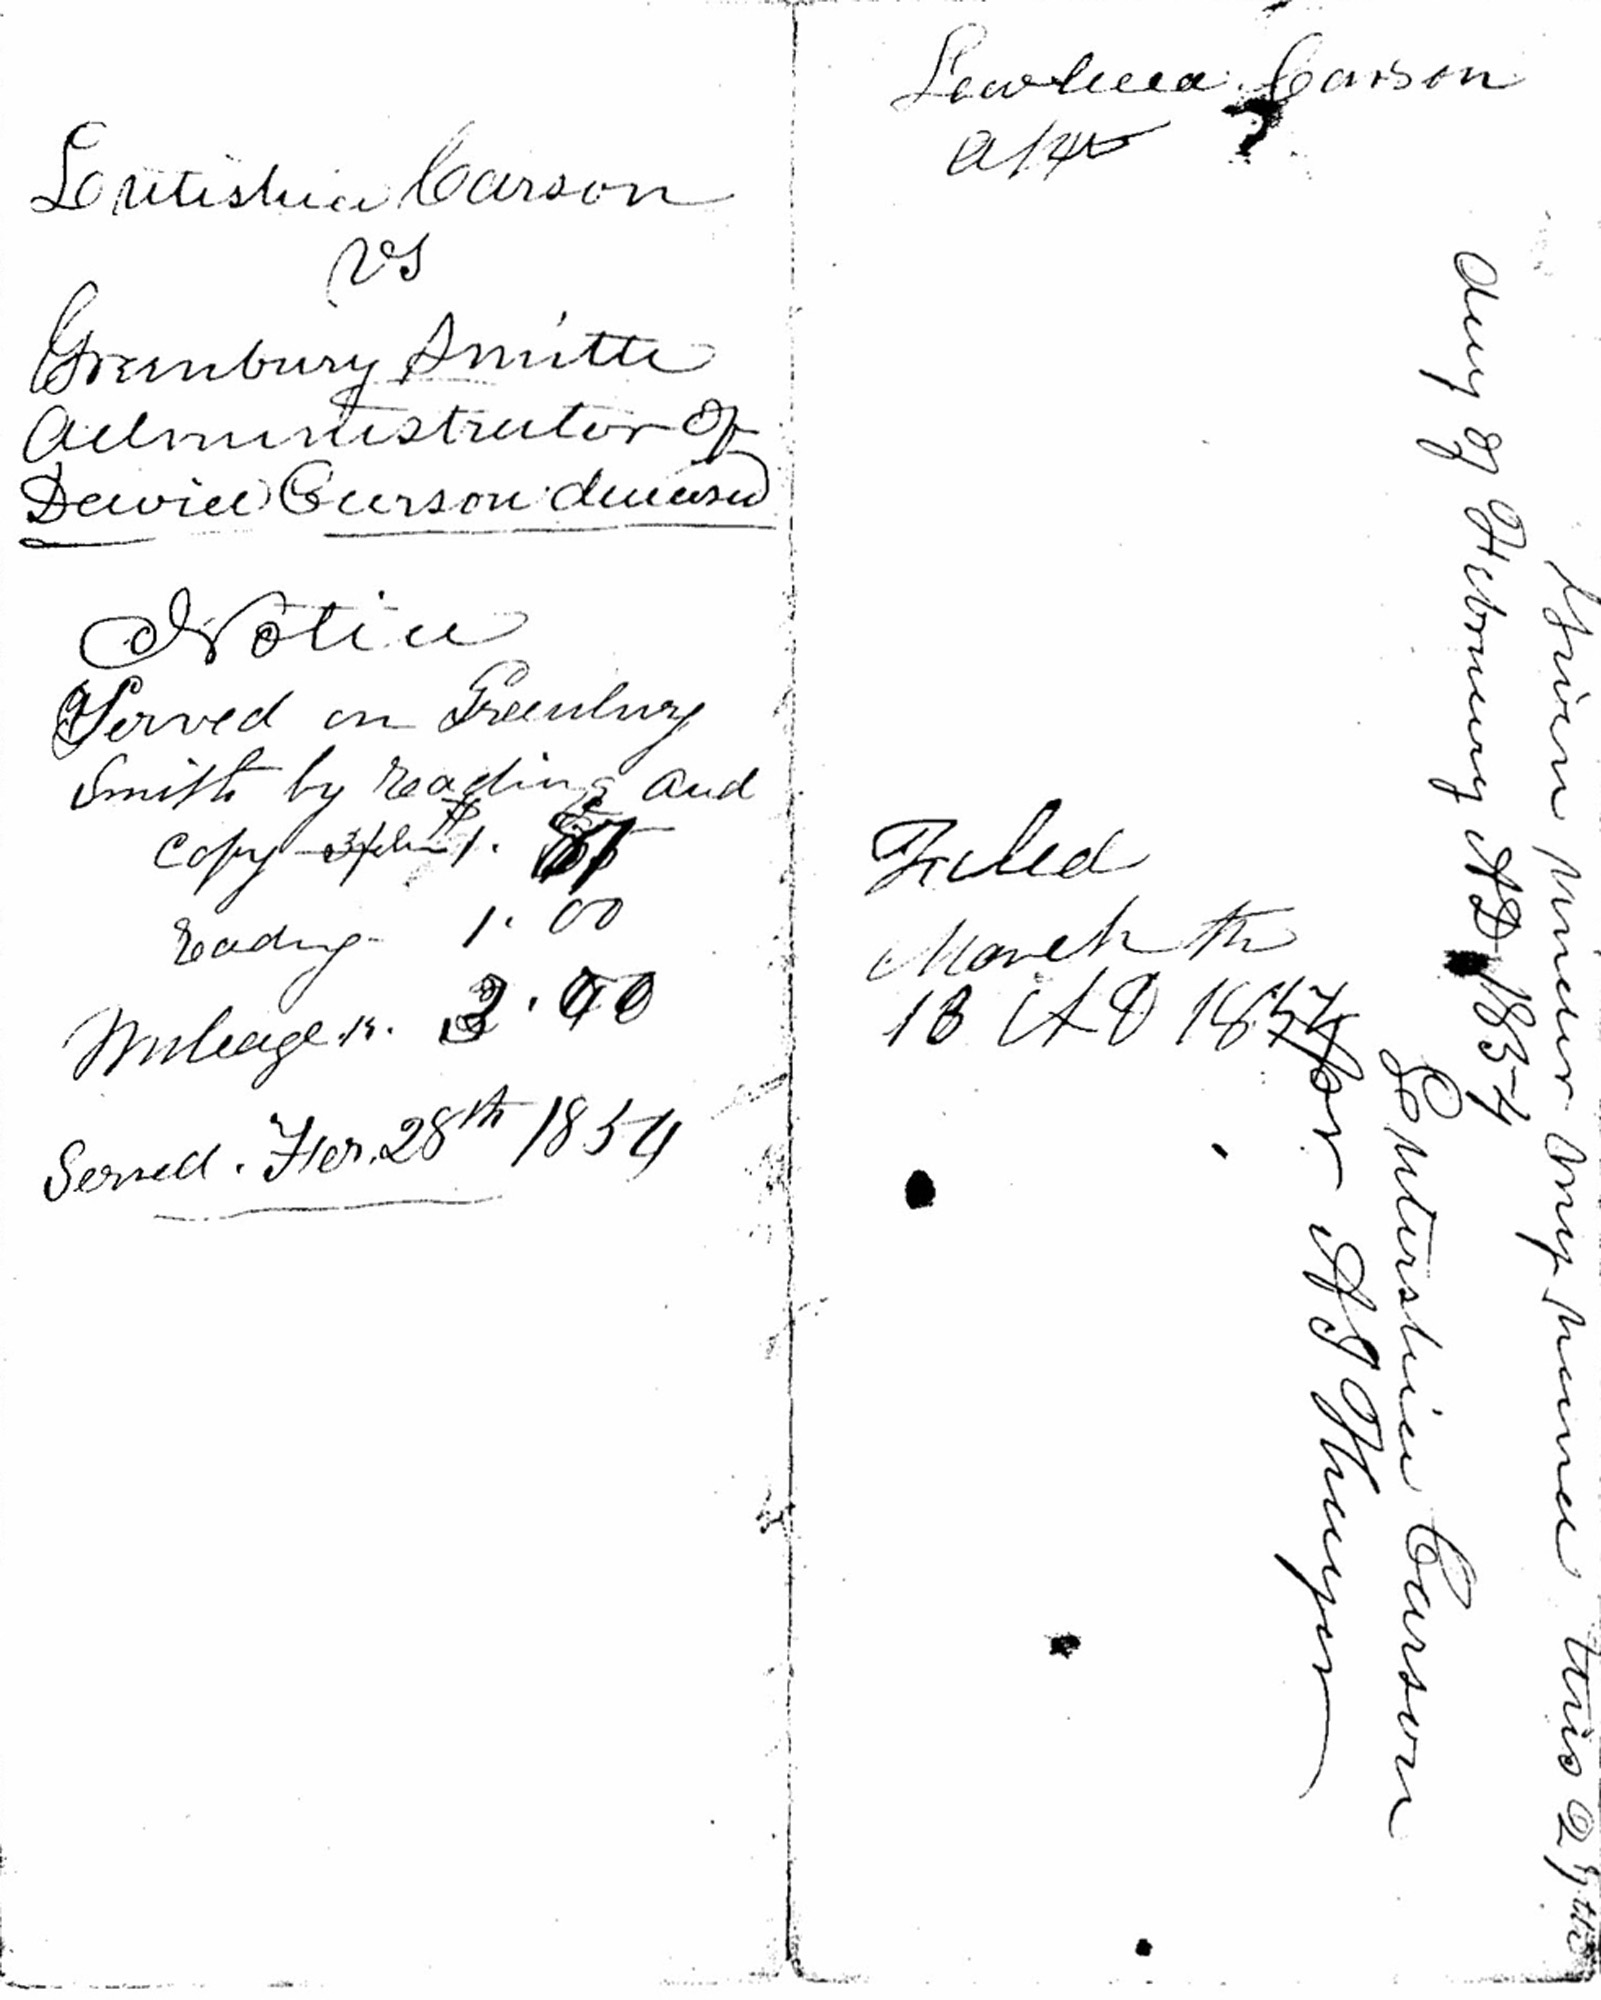 Loutishia Carson
vs
Greenbury Smith
Administrator of
David Carson deceased
Notice
Served on Greenbury
Smith by reading and
copy 1.
reading 1.00
Mileage
Served. Feb. 28th 1854
Carson
Filed
March th
13 A D 1854
Given under my hand this 27th
day of February AD 1854
Loutishia Carson
for A J Thayer